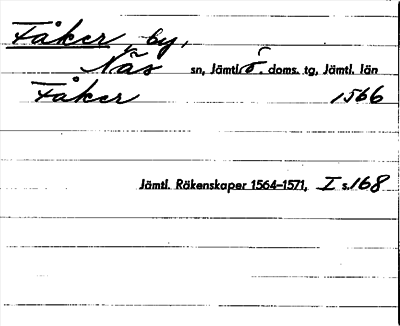 Fåker by,
Näs sn, Jämtl. ö. doms. tg, Jämtl. län
Fåker 1566
Jämtl. Räkenskaper 1564–1571, I s. 168